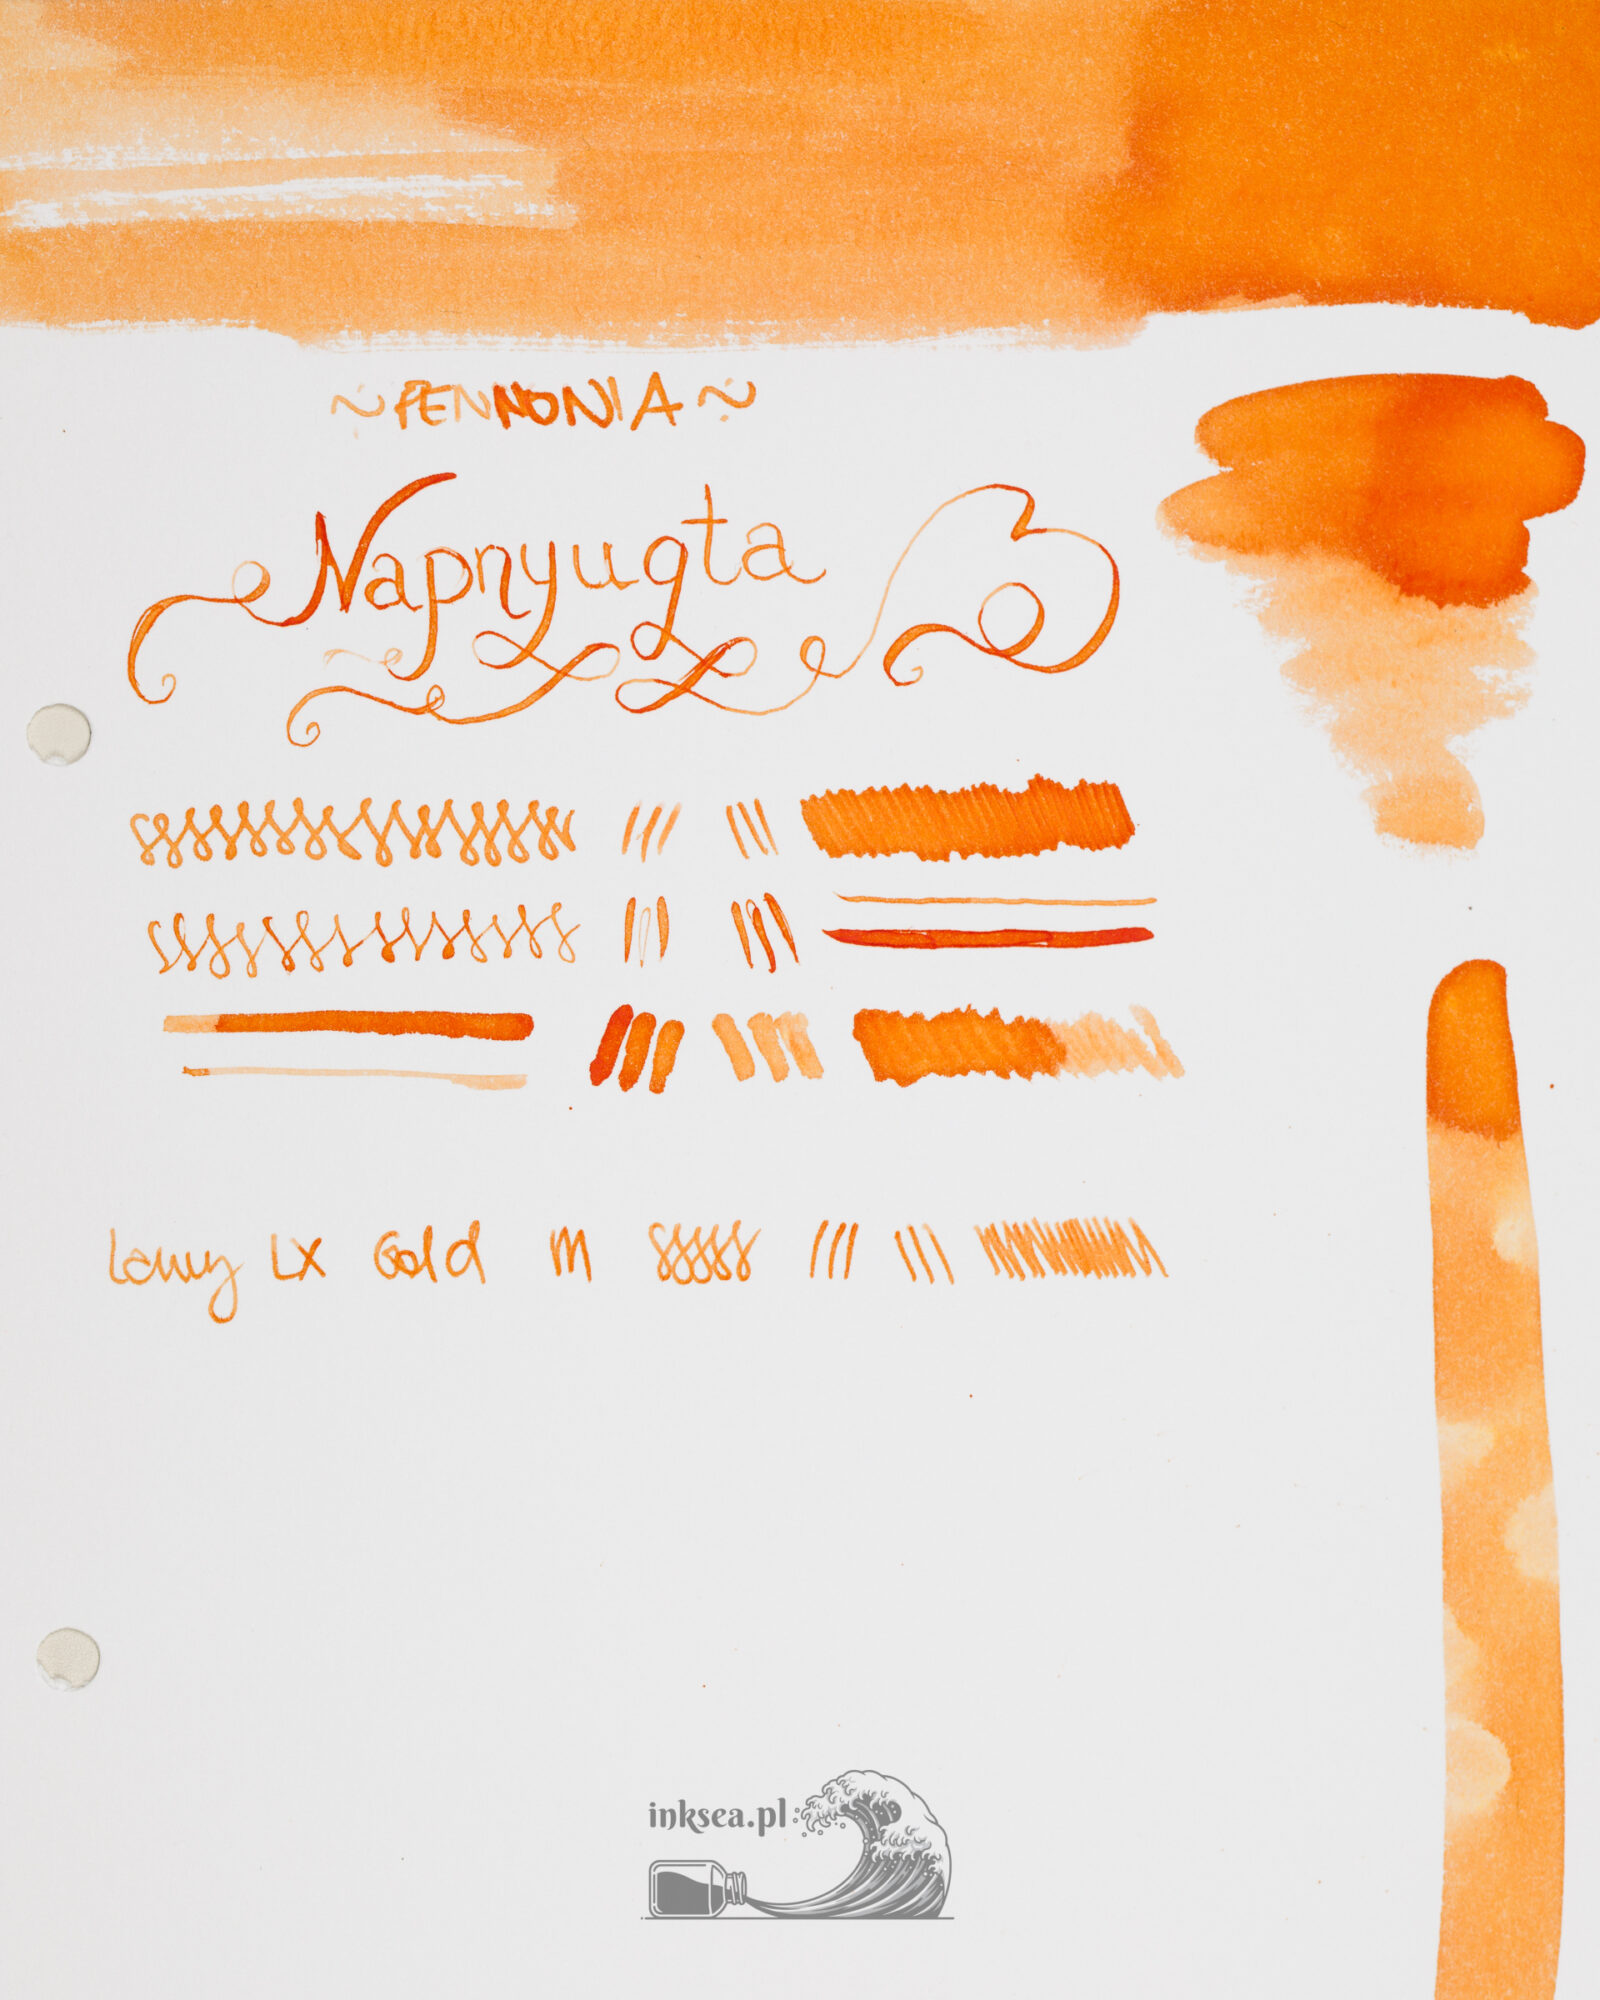 ~ PENNONIA ~
Napnyugta
Lamy LX Gold M
inksea.pl